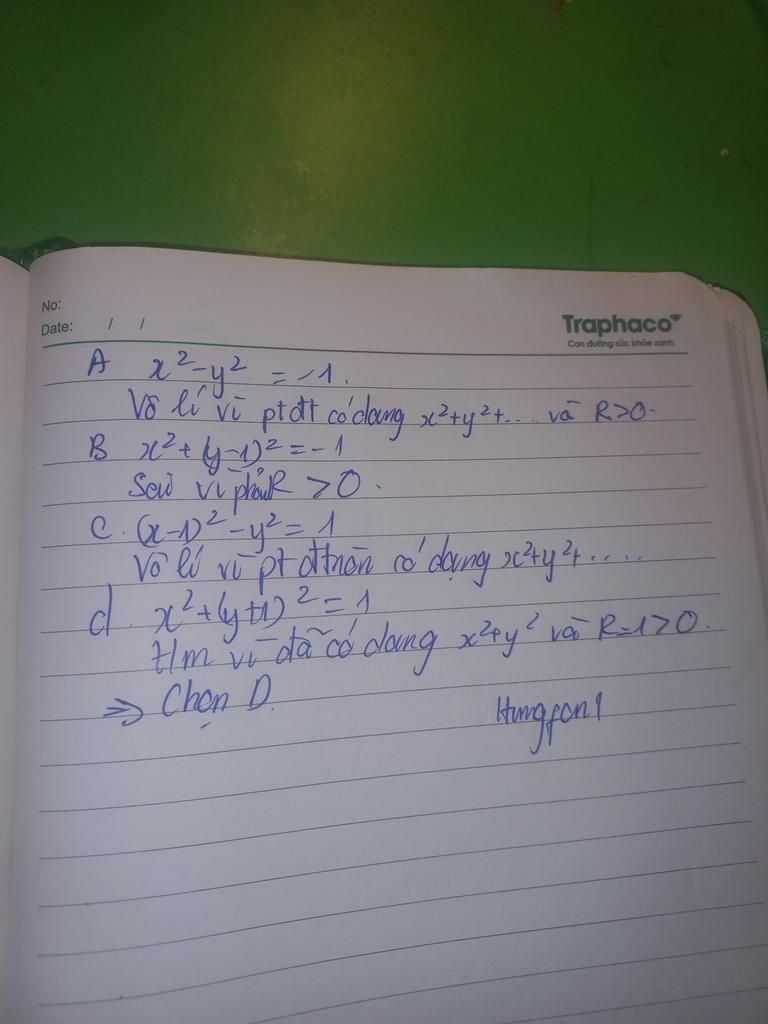 No:
Date: / /
Traphaco
Con đường sức khỏe xanh
A x² - y² = -1.
Vô lí vì pt đtt có dạng x² + y² + .... và R > 0.
B x² + (y - 1)² = -1
Sai vì phải R > 0.
C. (x - 1)² - y² = 1
Vô lí vì pt đt tròn có dạng x² + y² + ....
d. x² + (y + 1)² = 1
t/m vì đã có dạng x² + y² và R = 1 > 0.
=> Chọn D.
Hungfcn1